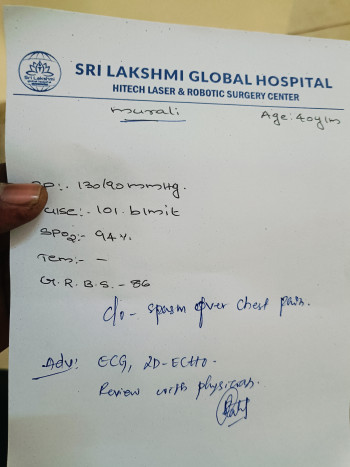 Sri Lakshmi
SRI LAKSHMI GLOBAL HOSPITAL
HITECH LASER & ROBOTIC SURGERY CENTER
murali
Age: 40y/m
BP:- 130/90 mmHg.
Pulse:- 101. b/mit
SPO2:- 94 %.
Tem:- -
G.R.B.S. - 86
c/o - spasm over chest pain.
Adv: ECG, 2D-ECHO -
Review with physician.